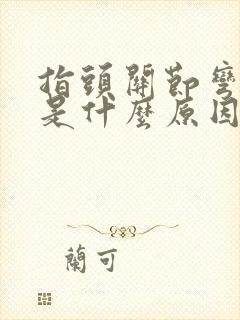 指頭關節彎
是什麼原因
蘭可